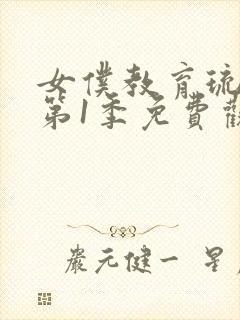 女僕教育琉
第1季免費觀
嚴元健一 星